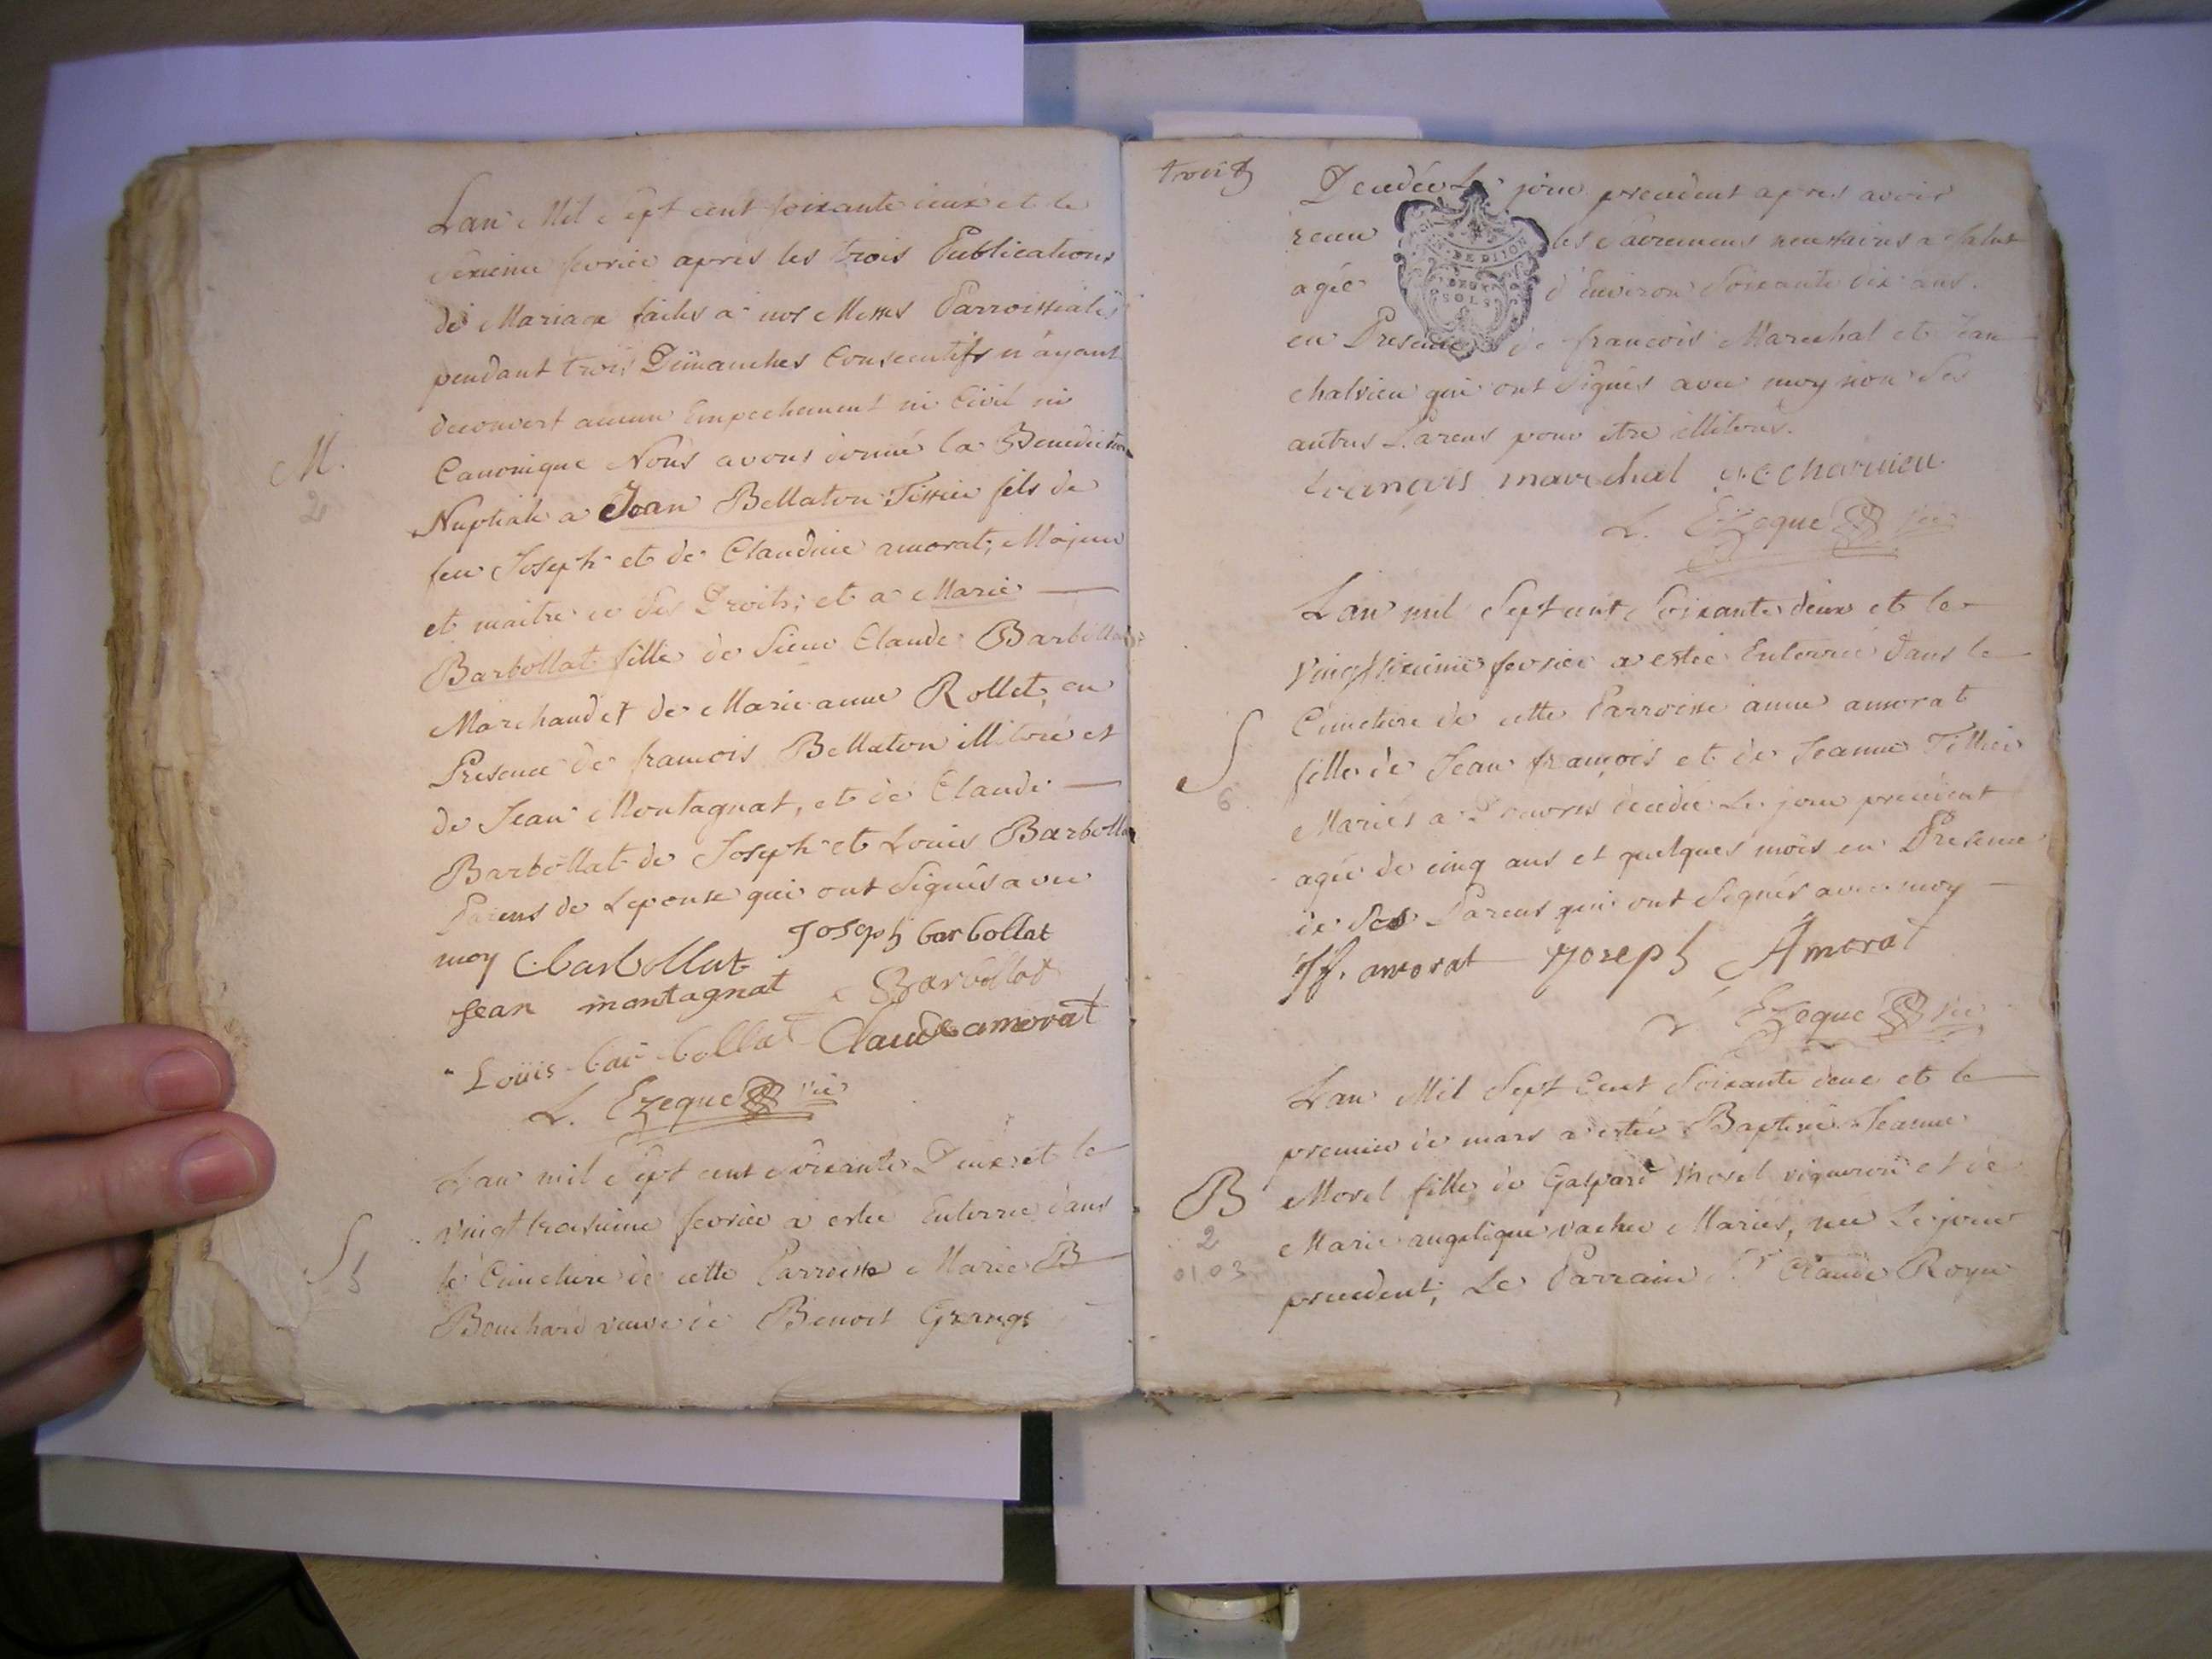 Lan Mil Sept cent soixante deux et le
sixieme fevrier apres les trois Publications
de Mariage faites a nos Messes Parroissiales
pendant trois Dimanches Consecutifs n'ayant
decouvert aucun Empechement ni Civil ni
M.
Canonique Nous avons donné la Benediction
2
Nuptiale a Jean Bellaton Tissier fils de
feu Joseph et de Claudine amorat, Majeur
et maitre de ses Droits; et a Marie
Barbollat fille de Sieur Claude Barbollat
Marchand et de Marie anne Rollet, en
Presence de francois Bellaton illitoré et
de Jean Montagnat, et de Claude
Barbollat de Joseph et Louis Barbollat
Parens de Lepouse qui ont Signés avec
moy C barbollat Joseph barbollat
Jean montagnat Barbollat
Louis barbollat Claude amorat
L. Ezeque vic
Lan mil Sept cent Soixante Deux et le
vingt troisieme fevrier a estee Enterree dans
S
5
le Cimetiere de cette Parroisse Marie B
Bouchard veuve de Benoit Grange
trois
Decedée Le jour precedent apres avoir
receu les Sacremens necessaires a Salut
DE DIJON
DEUX
SOLS
agée d'Environ Soixante dix ans.
en Presence de francois Marechal et Jean
chalvieu qui ont Signés avec moy non Ses
autres Parens pour etre illitorés.
francois marechal
L. Ezeque vic
Lan mil Sept cent Soixante deux et le
Vingtsixieme fevrier a estée Enterrée Dans le
Cimetiere de cette Parroisse anne amorat
S
6
fille de Jean françois et de Jeanne
Mariés a decedée Le jour precedent
agée de cinq ans et quelques mois en Presence
de Ses Parens qui ont Signés avec moy
Jf. amorat Joseph Amorat
L. Ezeque vic
Lan Mil Sept Cent Soixante deux et le
premier de mars a estée Baptisée Jeanne
B
Morel fille de Gaspard Morel vigneron et de
2
Marie angelique vacher Mariés, née Le jour
01.03
precedent; Le Parrain Sr Claude Royer